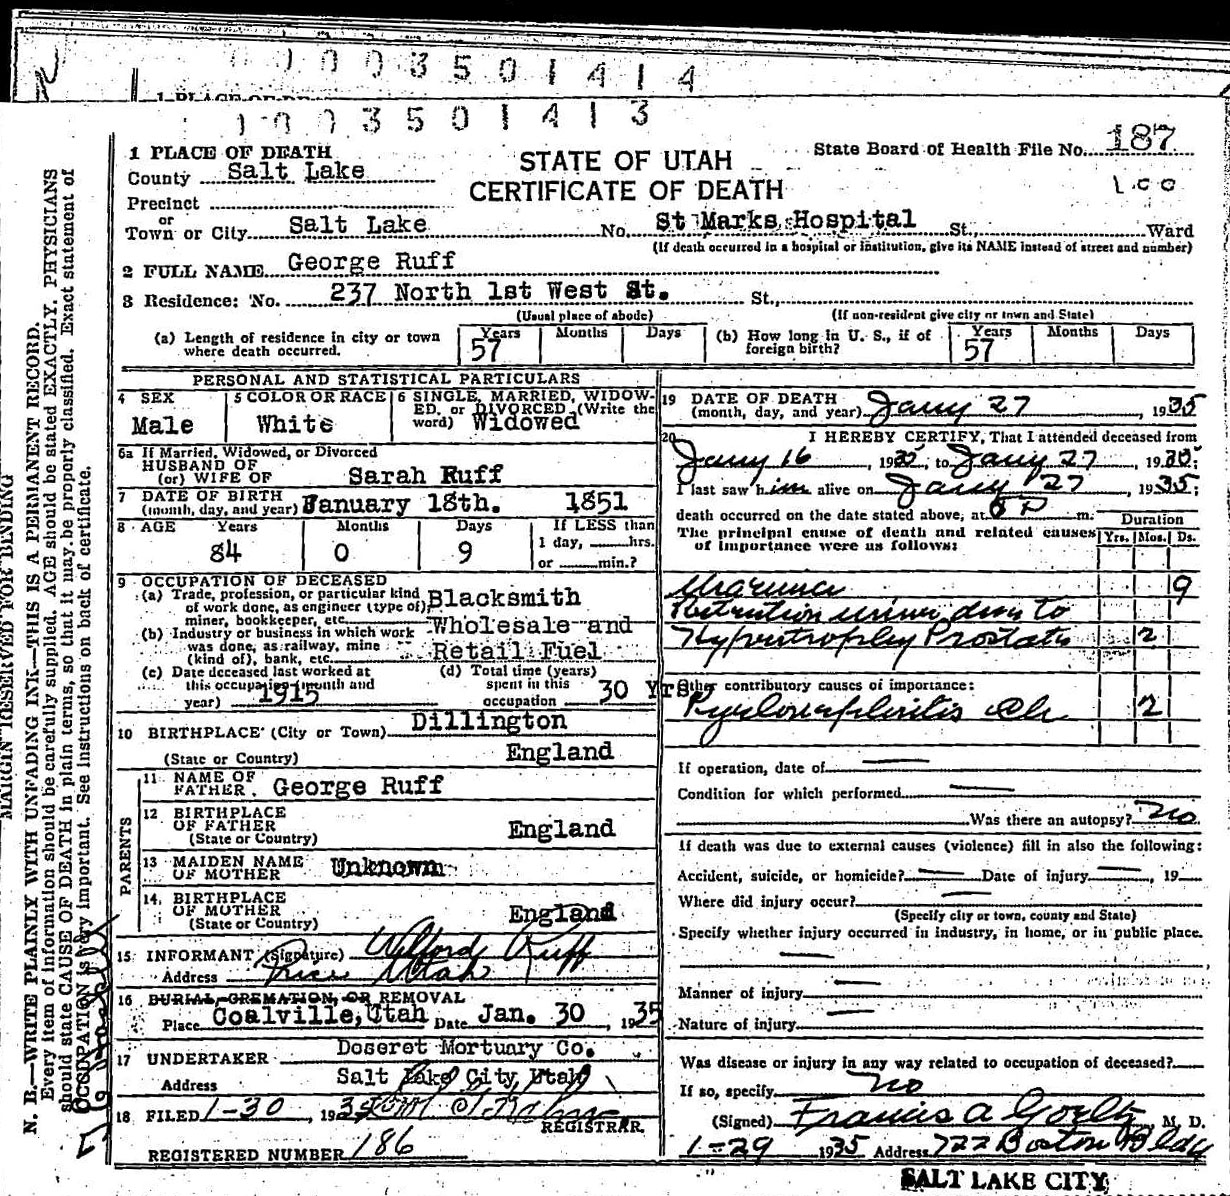 0003501414
1 PLACE OF DE
1003501413
1 PLACE OF DEATH
County Salt Lake
Precinct
or
Town or City Salt Lake No. St Marks Hospital St., Ward
(If death occurred in a hospital or institution, give its NAME instead of street and number)
STATE OF UTAH
CERTIFICATE OF DEATH
State Board of Health File No. 187
100
2 FULL NAME George Ruff
3 Residence: No. 237 North 1st West St. St.,
(Usual place of abode) (If non-resident give city or town and State)
(a) Length of residence in city or town where death occurred. Years 57 Months Days
(b) How long in U. S., if of foreign birth? Years 57 Months Days
PERSONAL AND STATISTICAL PARTICULARS
4 SEX Male
5 COLOR OR RACE White
6 SINGLE, MARRIED, WIDOWED, or DIVORCED (Write the word) Widowed
6a If Married, Widowed, or Divorced
HUSBAND OF
(or) WIFE OF Sarah Ruff
7 DATE OF BIRTH
(month, day, and year) January 18th. 1851
8 AGE Years Months Days If LESS than
84 0 9 1 day, hrs.
or min.?
9 OCCUPATION OF DECEASED
(a) Trade, profession, or particular kind
of work done, as engineer (type of), Blacksmith
miner, bookkeeper, etc.
(b) Industry or business in which work Wholesale and
was done, as railway, mine
(kind of), bank, etc. Retail Fuel
(c) Date deceased last worked at
this occupation (month and
year) 1915
(d) Total time (years)
spent in this
occupation 30 Yrs.
10 BIRTHPLACE (City or Town) Dillington
(State or Country) England
PARENTS
11 NAME OF
FATHER George Ruff
12 BIRTHPLACE
OF FATHER England
(State or Country)
13 MAIDEN NAME
OF MOTHER Unknown
14 BIRTHPLACE
OF MOTHER England
(State or Country)
15 INFORMANT (Signature) Wilford Ruff
Address Price Utah
16 BURIAL, CREMATION, OR REMOVAL
Place Coalville, Utah Date Jan. 30, 1935
17 UNDERTAKER Deseret Mortuary Co.
Address Salt Lake City, Utah
18 FILED 1-30, 1935
REGISTRAR.
REGISTERED NUMBER 186
19 DATE OF DEATH
(month, day, and year) Jany 27, 1935
20 I HEREBY CERTIFY, That I attended deceased from
Jany 16, 1935, to Jany 27, 1935;
I last saw him alive on Jany 27, 1935;
death occurred on the date stated above, at 8 P m.
Duration
The principal cause of death and related causes Yrs. Mos. Ds.
of importance were as follows:
Uraemia 9
Retention urine due to
Hypertrophy Prostate 2
Other contributory causes of importance:
Pyelonephritis Ch 2
If operation, date of —
Condition for which performed —
Was there an autopsy? No
If death was due to external causes (violence) fill in also the following:
Accident, suicide, or homicide? — Date of injury —, 19
Where did injury occur? —
(Specify city or town, county and State)
Specify whether injury occurred in industry, in home, or in public place.
—
Manner of injury —
Nature of injury —
Was disease or injury in any way related to occupation of deceased?
If so, specify no
(Signed) Francis A Goeltz, M. D.
1-29 1935 Address 722 Boston Bldg
SALT LAKE CITY
MARGIN RESERVED FOR BINDING
N. B.—WRITE PLAINLY WITH UNFADING INK—THIS IS A PERMANENT RECORD.
Every item of information should be carefully supplied. AGE should be stated EXACTLY. PHYSICIANS
should state CAUSE OF DEATH in plain terms, so that it may be properly classified. Exact statement of
OCCUPATION is very important. See instructions on back of certificate.